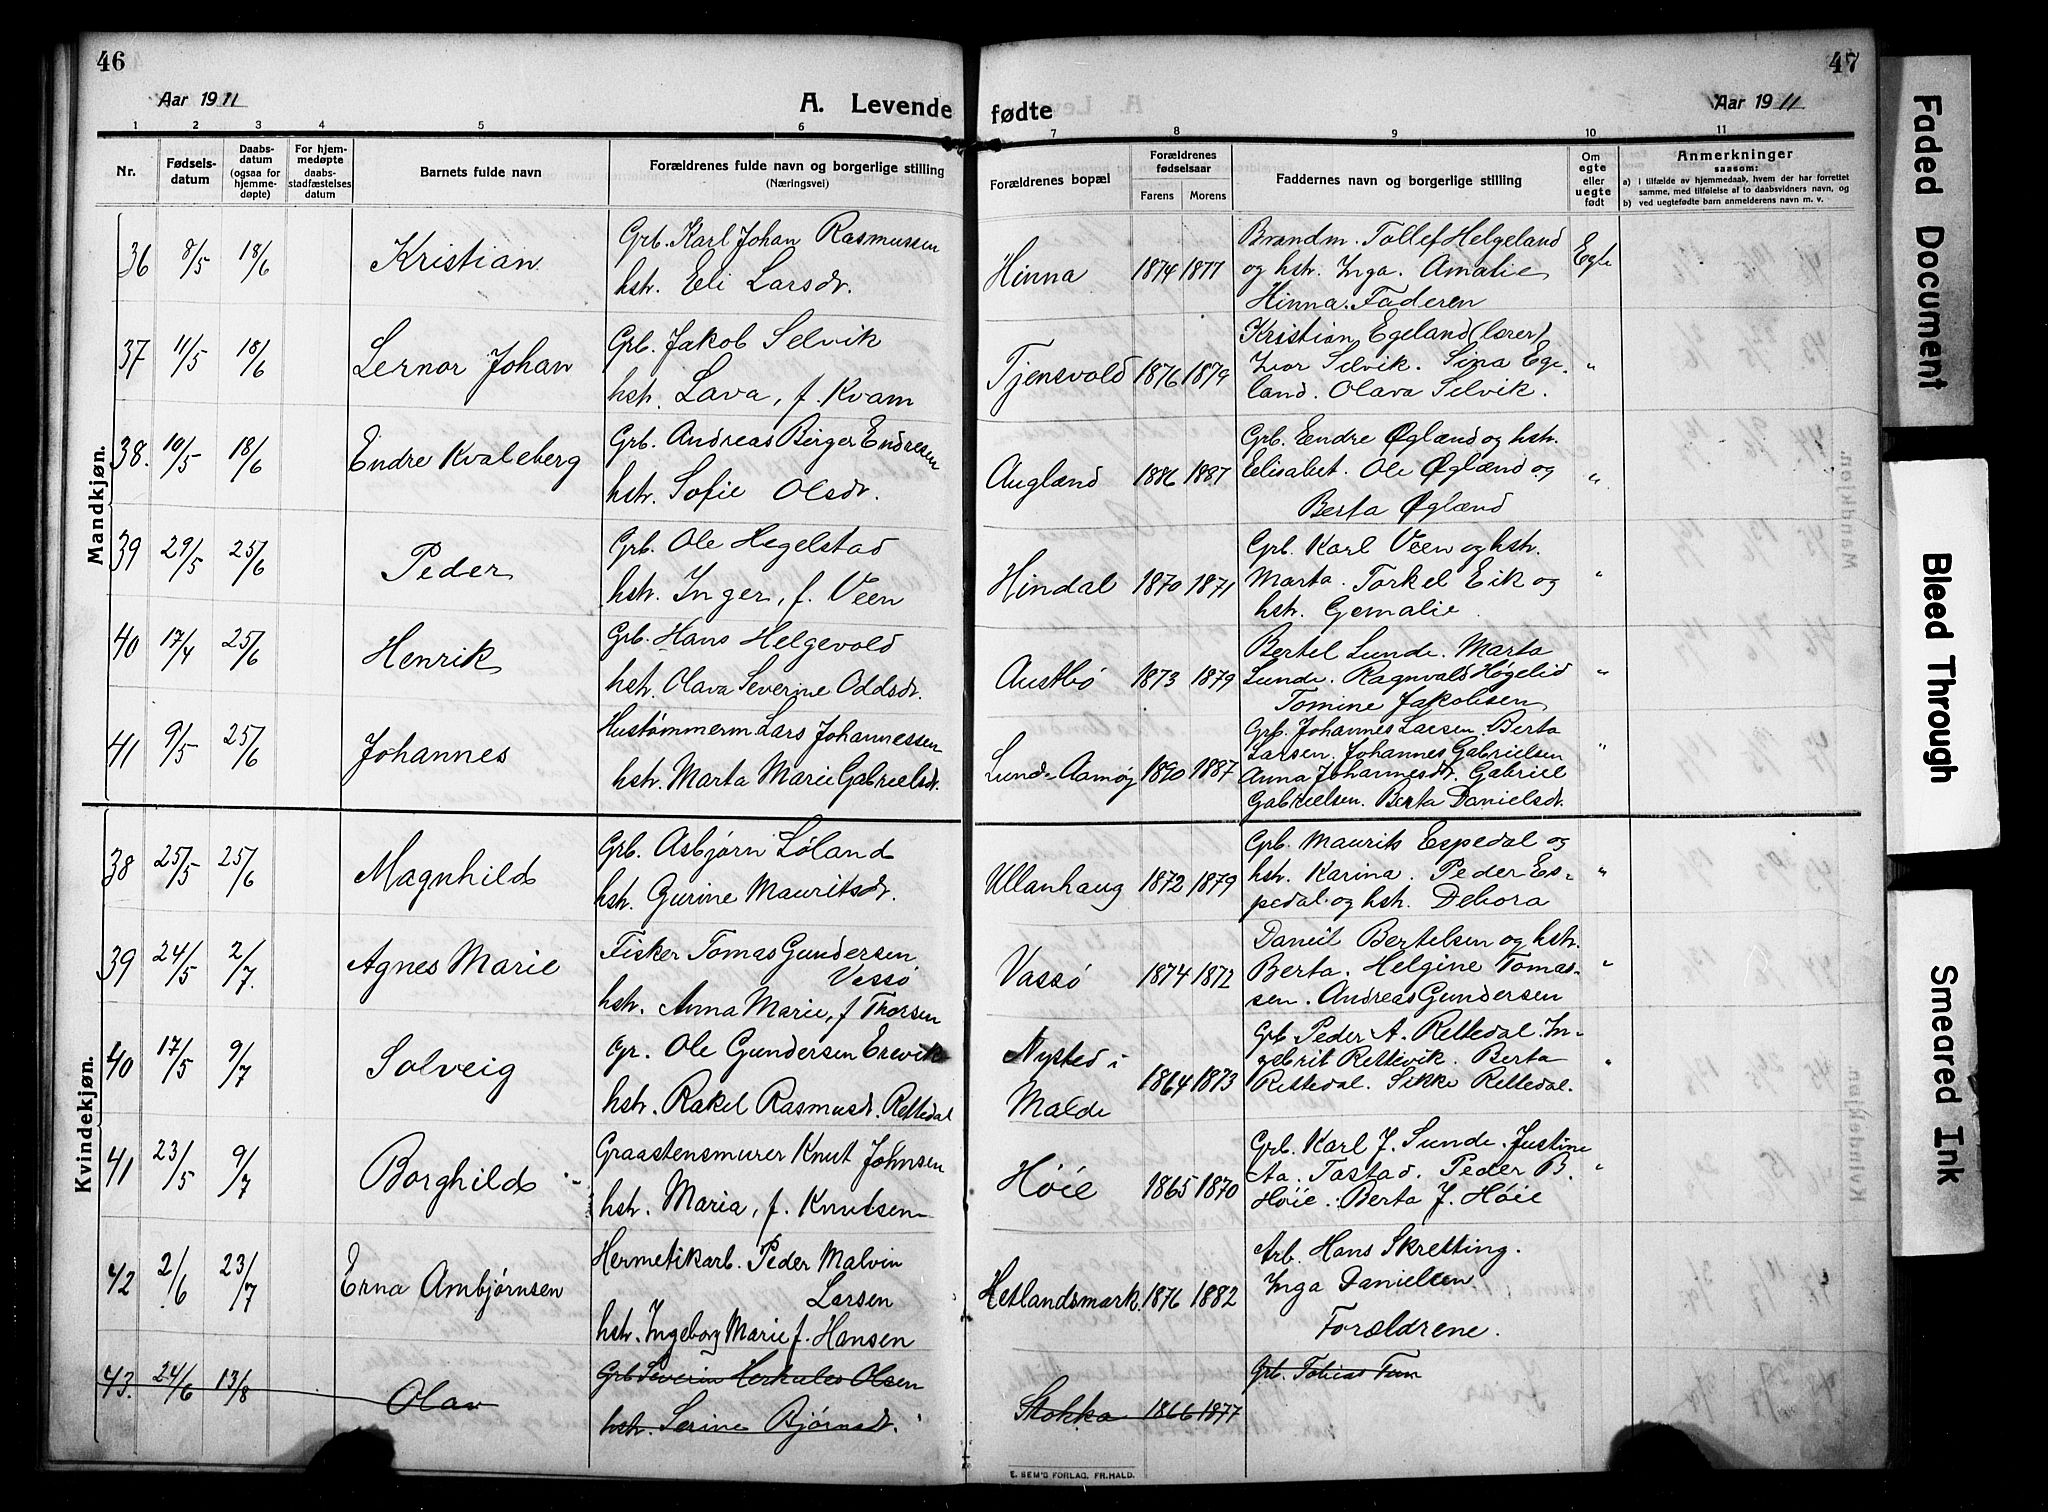 46
Aar 1911
A. Levende
1 2 3 4 5 6
Nr.
Fødsels-
datum
Daabs-
datum
(ogsaa for
hjemme-
døpte)
For hjem-
medøpte
daabs-
stadfæstelses
datum
Barnets fulde navn
Forældrenes fulde navn og borgerlige stilling
(Næringsvei)
Mandkjøn.
36 8/5 18/6 Kristian
Grb. Karl Johan Rasmussen
hstr. Eli Larsdr.
37 11/5 18/6 Lernor Johan
Grb. Jakob Selvik
hstr. Lava, f. Kvam
38. 10/5 18/6 Endre Kvaleberg
Grb. Andreas Berger Endresen
hstr. Sofie Olsdr.
39 29/5 25/6 Peder
Grb. Ole Hegelstad
hstr. Inger, f. Veen
40 17/4 25/6 Henrik
Grb. Hans Helgevold
hstr. Olava Severine Oddsdr.
41 9/5 25/6 Johannes
Hustømmerm Lars Johannessen
hstr. Marta Marie Gabrielsdr.
Kvindekjøn.
38 25/5 25/6 Magnhild
Grb. Asbjørn Løland
hstr. Gurine Mauritsdr.
39 24/5 2/7. Agnes Marie
Fisker Tomas Gundersen
Vassø
hstr. Anna Marie, f Thorsen
40 17/5 9/7 Solveig
Gr. Ole Gundersen Erevik
hstr. Rakel Rasmusdr. Rettedal
41 23/5 9/7 Borghild
Graastensmurer Knut Johnsen
hstr. Maria, f. Knutsen
42 2/6 23/7 Erna Ambjørnsen
Hermetikarb. Peder Malvin
Larsen
hstr. Ingeborg Marie f. Hansen
43. 24/6 13/8 Olav
Grb Severin Herkules Olsen
hstr. Serine Bjørnsdr.
47
fødte
Aar 1911
7 8 9 10 11
Forældrenes bopæl
Forældrenes
fødselsaar
Farens Morens
Faddernes navn og borgerlige stilling
Om
egte
eller
uegte
født
Anmerkninger
saasom:
a) i tilfælde av hjemmedaab, hvem der har forrettet
samme, med tilføielse af to daabsvidners navn, og
b) ved uegtefødte barn anmelderens navn m. v.
Hinna 1874 1877
Brandm. Tollef Helgeland
og hstr. Inga. Amalie
Hinna. Faderen
Egte
Tjensvold 1876 1879
Kristian Egeland (lærer)
Ivar Selvik. Sina Ege-
land. Olava Selvik.
"
Augland 1886 1887
Grb. Endre Øglænd og hstr.
Elisabet. Ole Øglænd og
Berta Øglænd
"
Hindal 1870 1871
Grb. Karl Veen og hstr.
Marta. Torkel Eik og
hstr. Gemalie
"
Austbø 1873 1879
Bertel Lunde. Marta
Lunde. Ragnvald Høgelid
Tomine Jakobsen
"
Lund-Aamøy 1890 1887
Grb. Johannes Larsen. Berta
Larsen. Johannes Gabrielsen
Anna Johannesdr. Gabriel
Gabrielsen. Berta Danielsdr.
"
Ullanhaug 1872 1879
Grb. Maurits Espedal og
hstr. Karina. Peder Es-
pedal og hstr. Debora
"
Vassø 1874 1872
Daniel Bertelsen og hstr.
Berta. Helgine Tomas-
sen. Andreas Gundersen
"
Nysted i
Malde
1864 1873
Grb Peder A. Rettedal. In-
gebrit Rettevik. Berta
Rettedal. Sikke Rettedal.
"
Høie 1865 1870
Grb. Karl J. Sunde. Justine
Aa. Tastad. Peder B.
Høie. Berta J. Høie
"
Hetlandsmark. 1876 1882
Arb. Hans Skretting.
Inga Danielsen
Forældrene.
Stokka 1866 1877
Grb. Tobias Tun
E. SEM'S FORLAG, FR.HALD.
Faded Document
Bleed Through
Smeared Ink